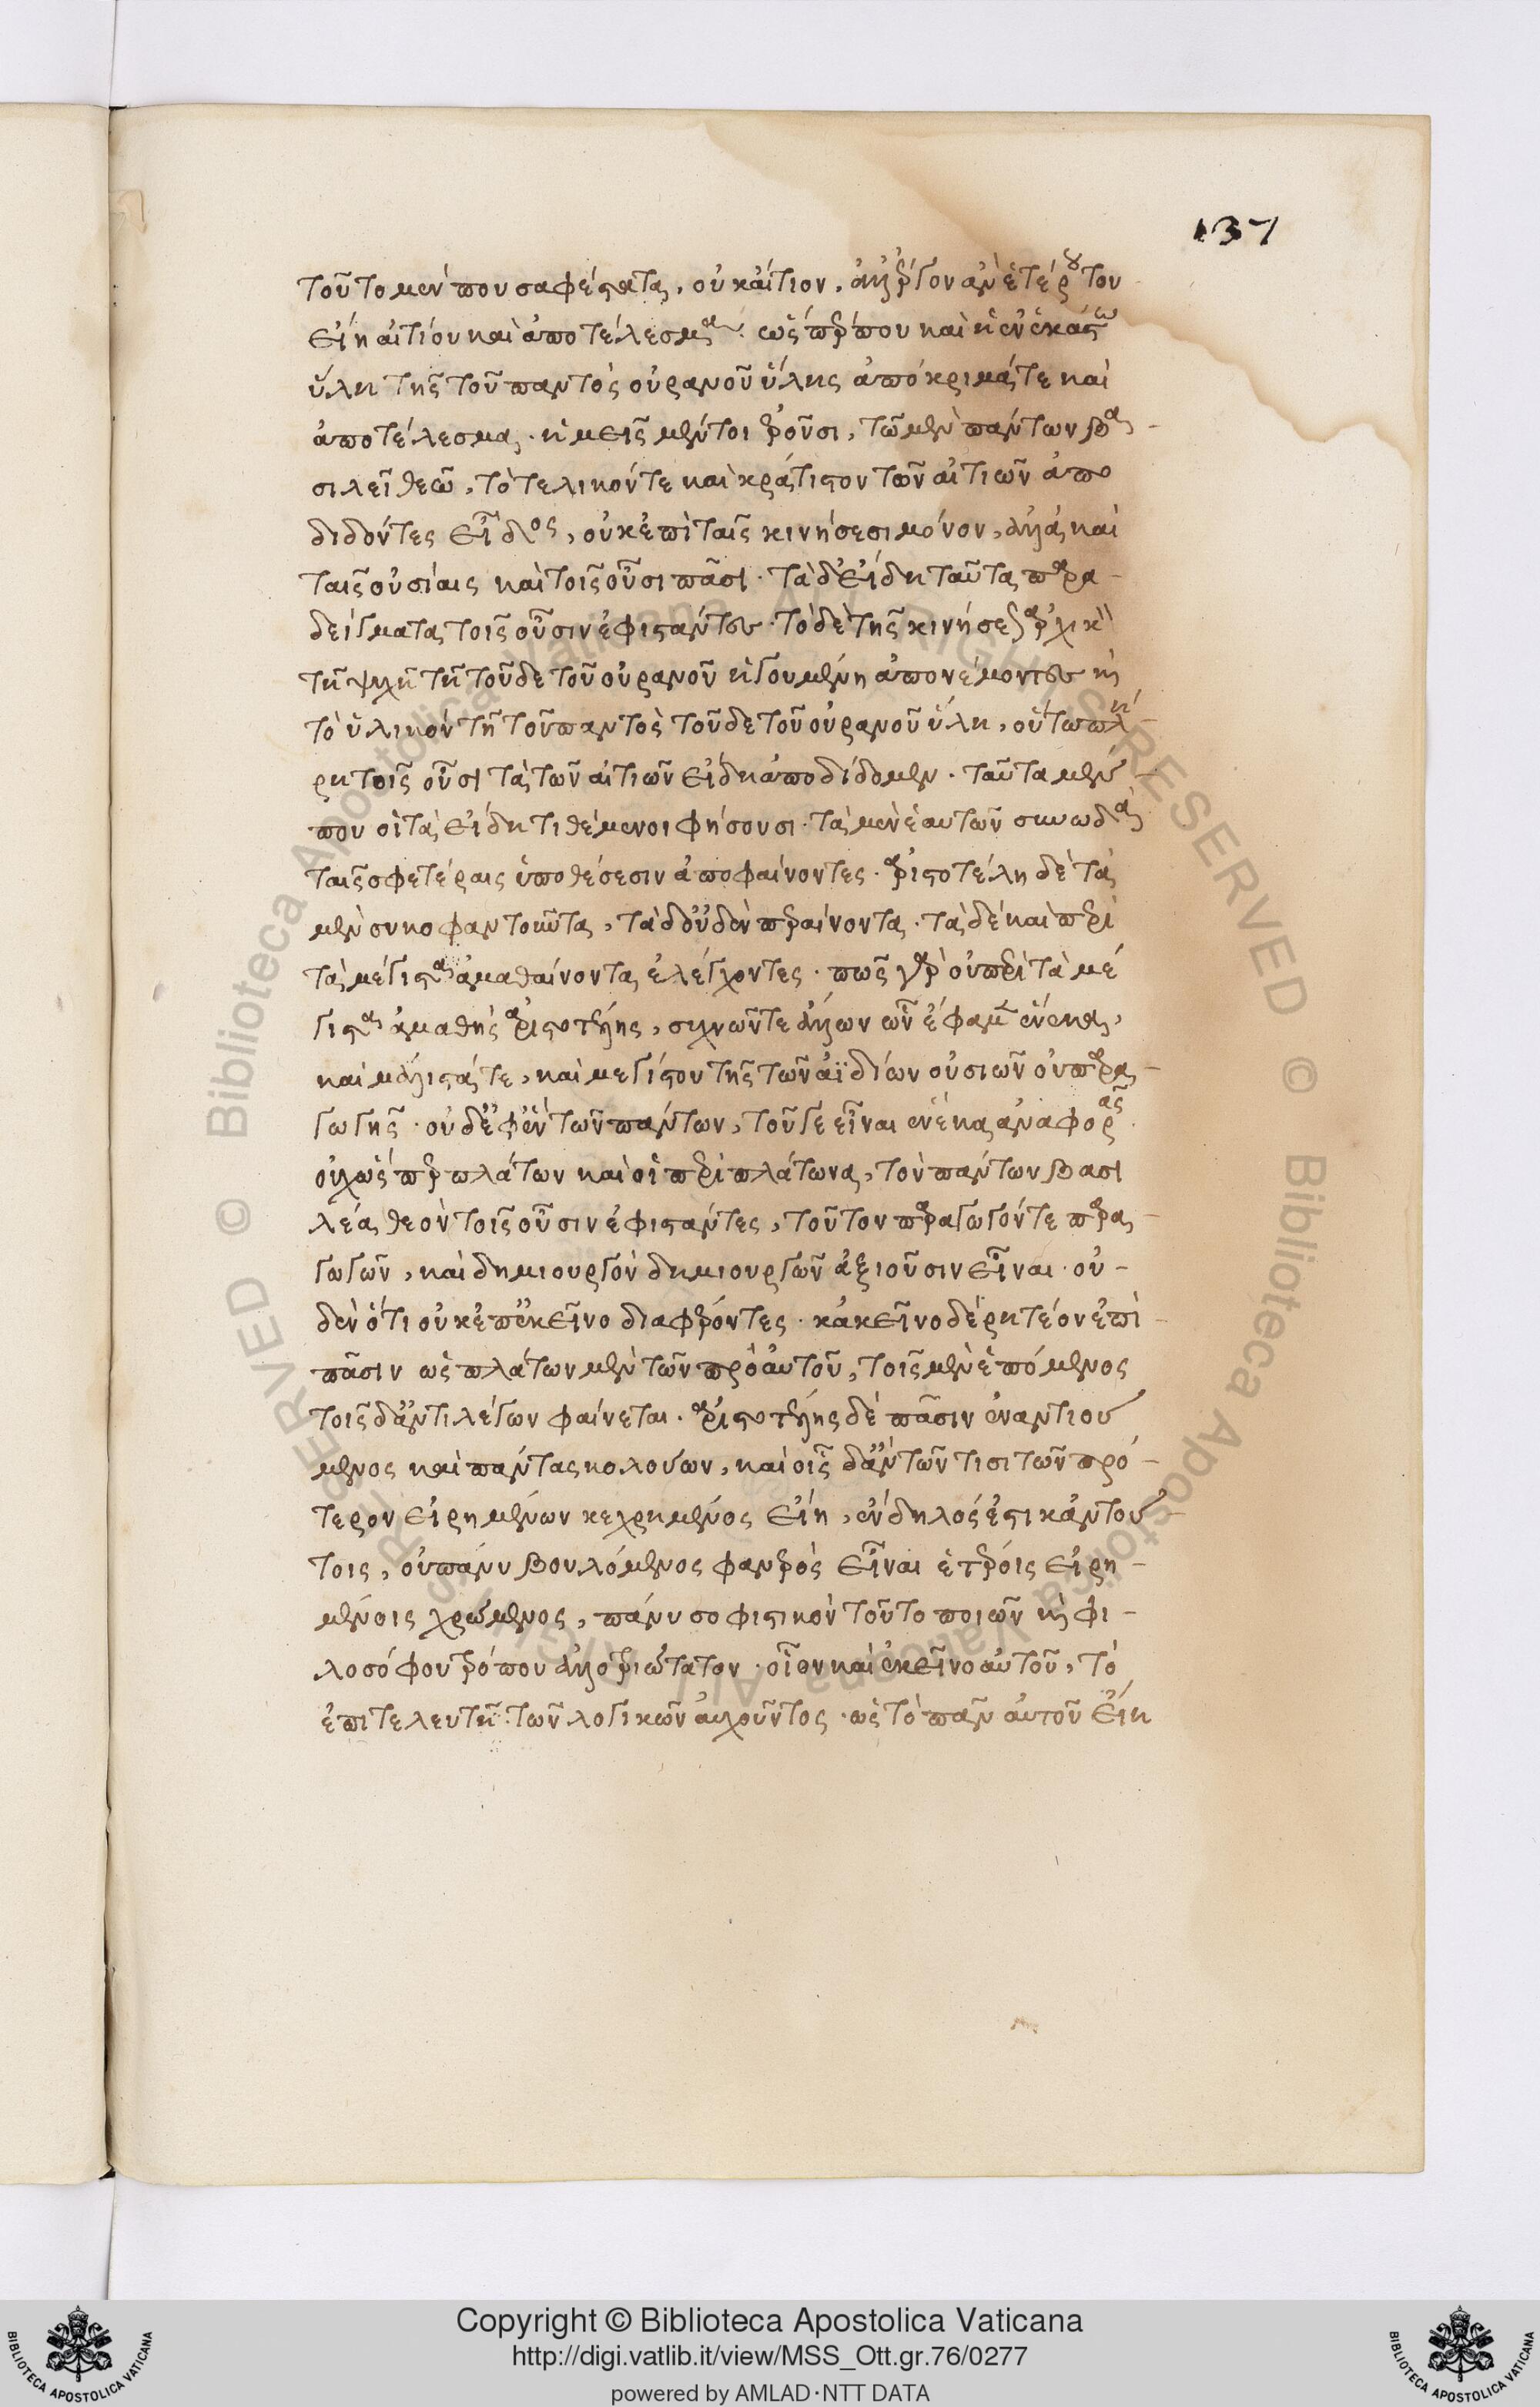 137
τοῦτο μὲν που σαφέστατα, οὐκ αἴτιον, ἀλλ' ἔργον ἂν ἑτέρου του
εἴη αἰτίου καὶ ἀποτέλεσμα. ὥσπερ που καὶ ἡ ἐν ἑκάστῳ
ὕλη τῆς τοῦ παντὸς οὐρανοῦ ὕλης ἀπόκριμά τε καὶ
ἀποτέλεσμα. ἡμεῖς μέντοι ἐροῦσι, τῷ μὲν πάντων βα-
σιλεῖ θεῷ, τὸ τελικόν τε καὶ κράτιστον τῶν αἰτιῶν ἀπο
διδόντες εἶδος, οὐκ ἐπὶ ταῖς κινήσεσι μόνον, ἀλλὰ καὶ
ταῖς οὐσίαις καὶ τοῖς οὖσι πᾶσι. τὰ δ' εἴδη ταῦτα παρα-
δείγματα τοῖς οὖσιν ἐφιστάντες. τὸ δὲ τῆς κινήσεως ἀρχικὸν
τῇ ψυχῇ τῇ τοῦδε τοῦ οὐρανοῦ ἡγουμένῃ ἀπονέμοντες καὶ
τὸ ὑλικὸν τῇ τοῦ παντὸς τοῦδε τοῦ οὐρανοῦ ὕλῃ, οὕτω πλή-
ρη τοῖς οὖσι τὰ τῶν αἰτιῶν εἴδη ἀποδίδομεν. ταῦτα μέν-
που οἱ τὰ εἴδη τιθέμενοι φήσουσι. τὰ μὲν ἑαυτῶν συνωδὰ
ταῖς σφετέραις ὑποθέσεσιν ἀποφαίνοντες. ἀριστοτέλη δὲ τὰ
μὲν συκοφαντοῦντα, τὰ δ' οὐδὲν περαίνοντα. τὰ δὲ καὶ περὶ
τὰ μέγιστα ἀμαθαίνοντα ἐλέγχοντες. πῶς γὰρ οὐ περὶ τὰ μέ
γιστα ἀμαθὴς ἀριστοτέλης, συχνῶν τε ἄλλων ὧν ἔφαμεν ἕνεκα,
καὶ μάλιστά τε, καὶ μεγίστου τῆς τῶν ἀϊδίων οὐσιῶν οὐ παρα-
γωγῆς. οὐδ' ἐφ' ἓν τῶν πάντων, τοῦ γε εἶναι ἕνεκα ἀναφορᾶς.
οὐχ ὥσπερ πλάτων καὶ οἱ περὶ πλάτωνα, τὸν πάντων βασι
λέα θεὸν τοῖς οὖσιν ἐφιστάντες, τοῦτον παραγωγόν τε παρα-
γωγῶν, καὶ δημιουργὸν δημιουργῶν ἀξιοῦσιν εἶναι. οὐ-
δὲν ὅτι οὐκ ἐπ' ἐκεῖνο διαφέροντες. κἀκεῖνο δὲ ῥητέον ἐπὶ-
πᾶσιν ὡς πλάτων μὲν τῶν πρὸ αὐτοῦ, τοῖς μὲν ἑπόμενος
τοῖς δ' ἀντιλέγων φαίνεται. ἀριστοτέλης δὲ πᾶσιν ἐναντιού
μενος καὶ πάντας κολούων, καὶ οἷς δ' ἂν τῶν τισι τῶν πρό-
τερον εἰρημένων κεχρημένος εἴη, ἔνδηλός ἐστι κἂν τού-
τοις, οὐ πάνυ βουλόμενος φανερὸς εἶναι ἑτέροις εἰρη-
μένοις χρώμενος, πάνυ σοφιστικὸν τοῦτο ποιῶν καὶ φι-
λοσόφου τρόπου ἀλλοτριώτατον. οἷον καὶ ἐκεῖνο αὐτοῦ, τὸ
ἐπὶ τελευτῇ τῶν λογικῶν αὐχοῦντος. ὡς τὸ πᾶν αὐτοῦ εἴη
Copyright © Biblioteca Apostolica Vaticana
http://digi.vatlib.it/view/MSS_Ott.gr.76/0277
powered by AMLAD·NTT DATA
BIBLIOTECA APOSTOLICA VATICANA
BIBLIOTECA APOSTOLICA VATICANA
© Biblioteca Apostolica Vaticana ALL RIGHTS RESERVED © Biblioteca Apostolica Vaticana ALL RIGHTS RESERVED